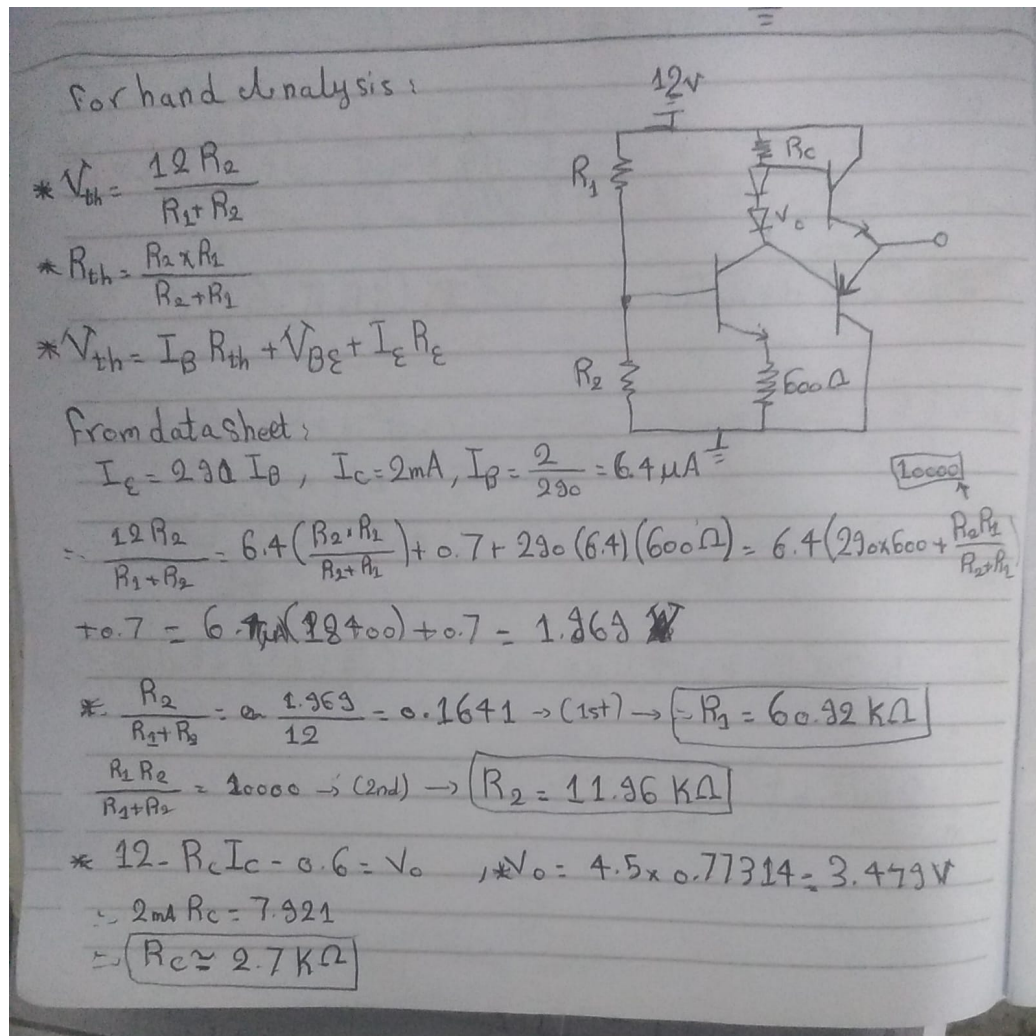 for hand Analysis:
12v
* Vth = 12 R2 / R1 + R2
R1
Rc
Vo
* Rth = R2 x R1 / R2 + R1
* Vth = IB Rth + VBE + IE RE
R2
600Ω
from data sheet:
IE = 291 IB , IC = 2mA, IB = 2 / 290 = 6.4 μA
10000
∴ 12 R2 / R1 + R2 = 6.4 (R2 . R1 / R2 + R1) + 0.7 + 290 (6.4) (600Ω) = 6.4 (290x600 + R2R1 / R2+R1
+0.7 = 6.4μA (18400) + 0.7 = 1.969
* R2 / R1 + R2 = 1.969 / 12 = 0.1641 → (1st) → ∴ R1 = 60.92 KΩ
R1 R2 / R1 + R2 = 10000 → (2nd) → R2 = 11.96 KΩ
* 12 - Rc Ic - 0.6 = Vo , * Vo = 4.5 x 0.77314 = 3.479 V
∴ 2mA Rc = 7.921
∴ Rc ≃ 2.7 KΩ